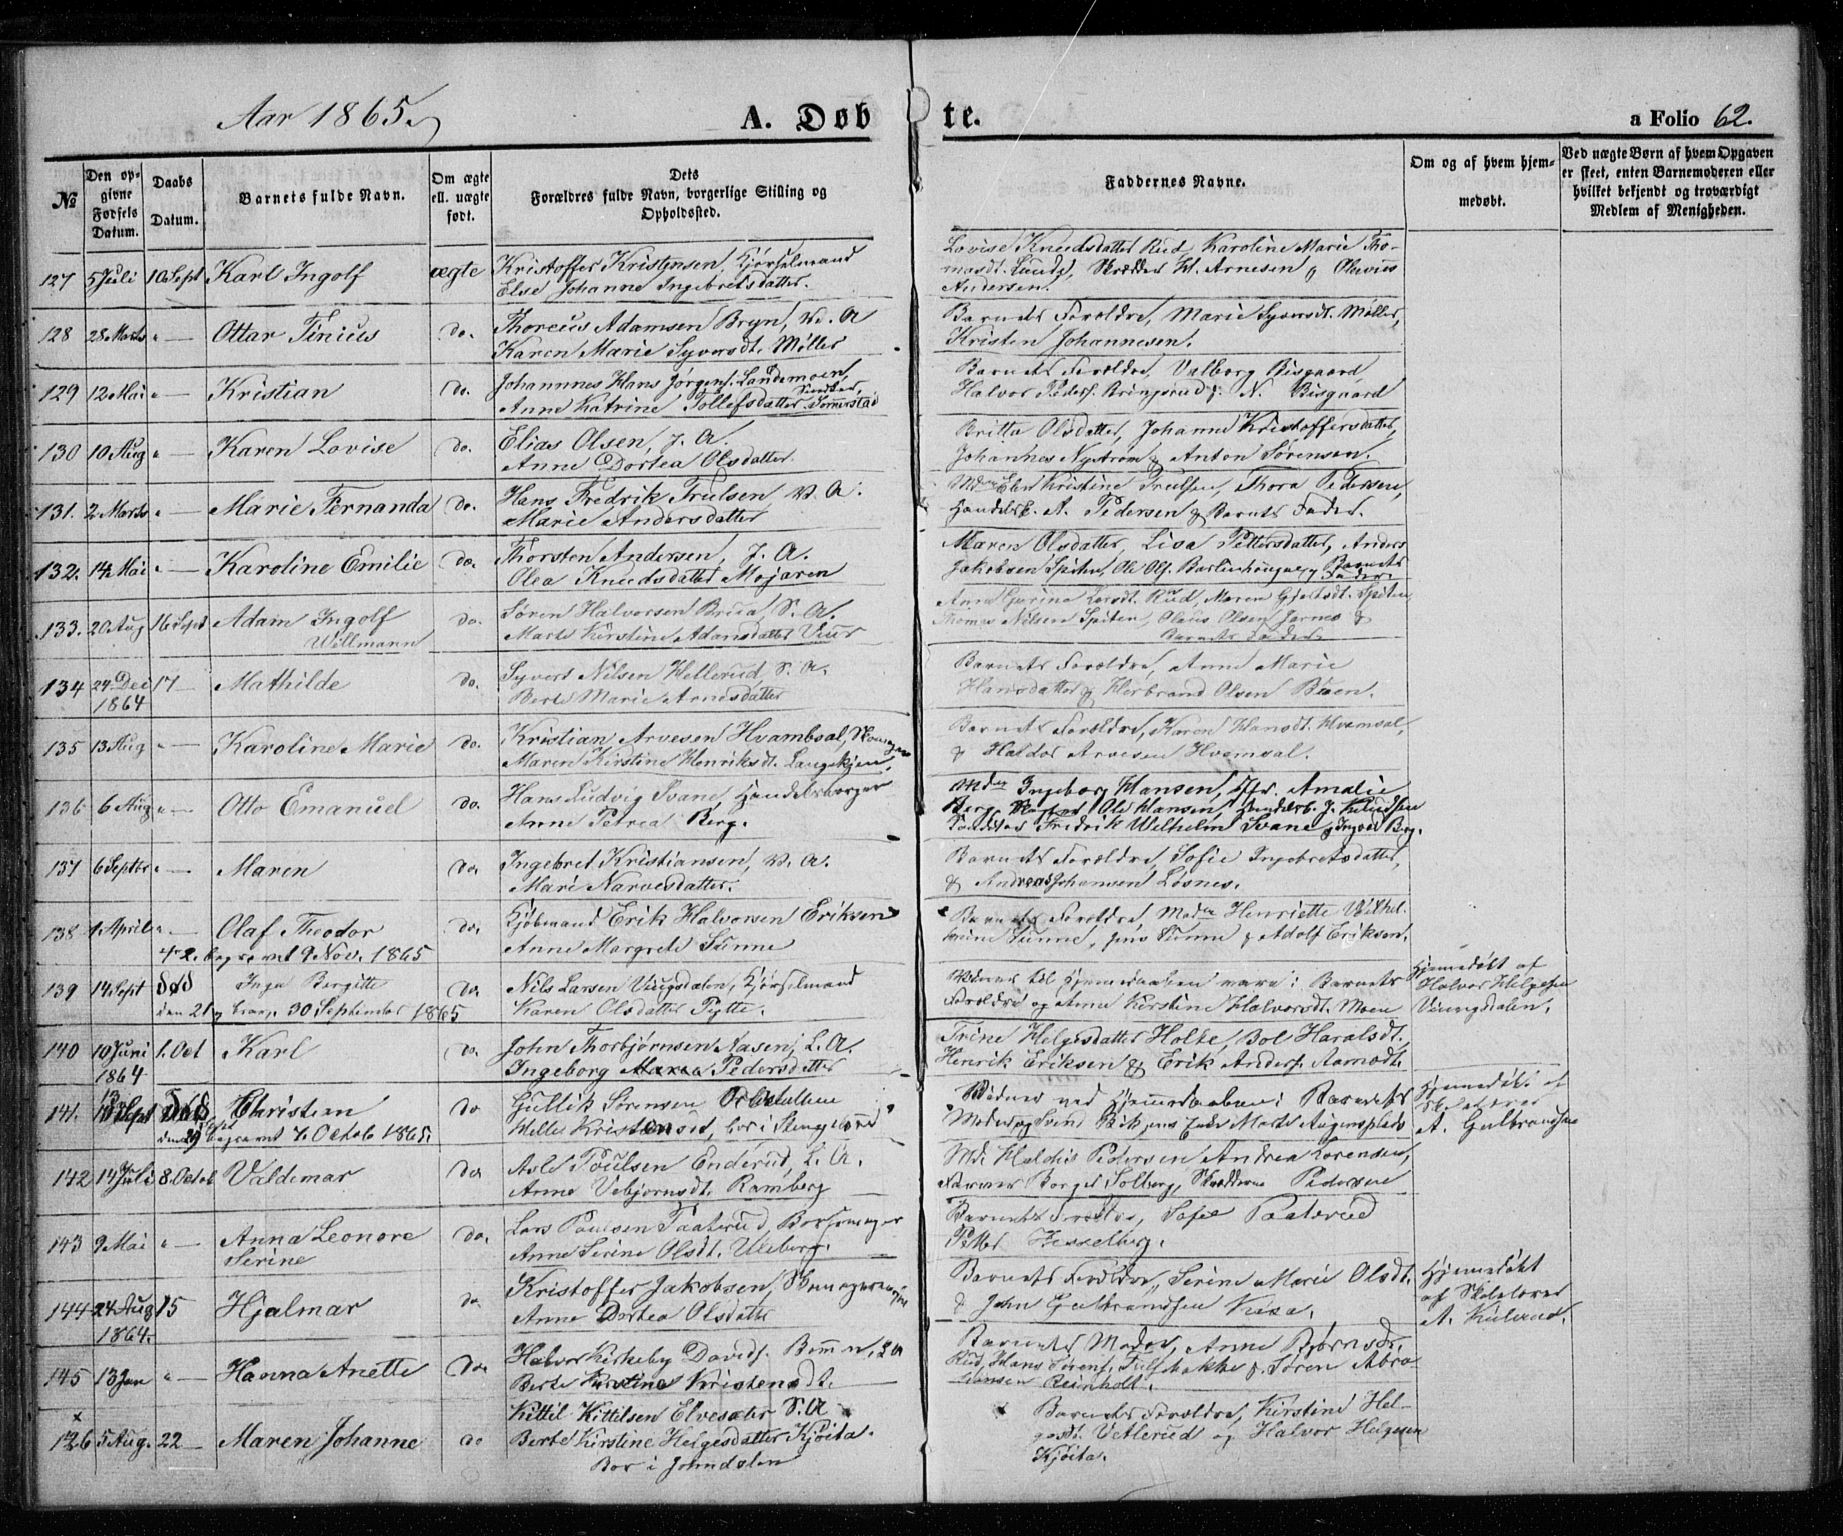 Aar 1865.
A. Døbte.
a Folio 62.
№
Den opgivne Fødsels Datum.
Daabs Datum.
Barnets fulde Navn.
Om ægte ell. uægte født.
Dets Forældres fulde Navn, borgerlige Stilling og Opholdssted.
Faddernes Navne.
Om og af hvem hjemmedøbt.
Ved uægte Børn af hvem Opgaven er skeet, enten Barnemoderen eller hvilket bekjendt og troværdigt Medlem af Menigheden.
127 5 Juli 10 Sept Karl Ingolf ægte Kristoffer Kristensen, Kjørselmand
Else Johanne Ingebretsdatter.
Lovise Knudsdatter Rud, Karoline Marie Tho-
masdt. Lunde, Skrædder H. Arnesen & Olavus
Andersen.
128 28 Marts " — Ottar Tinius do. Thoreus Adamsen Bryn, V. A
Karen Marie Syversdt. Møller
Barnets Forældre, Marie Syversdt. Møller,
Kristen Johannesen.
129 12 Mai " — Kristian do. Johannnes Hans Jørgens. Sandemoen,
Anne Katrine Tollefsdatter Tømmerstad
Barnets Forældre, Valborg Bisgaard,
Halvor Peders. Bringsrud & N. Bisgaard
130 10 Aug " — Karen Lovise do. Elias Olsen, J. A.
Anne Dortea Olsdatter
Britta Olsdatter, Johanne Kristoffersdatter,
Johannes Nystrøm & Anton Sørensen.
131. 2 Marts " — Marie Fernanda do. Hans Fredrik Trulsen, V. A.
Marie Andersdatter
Mdm Elen Kristine Trulsen, Thora Pedersen,
Handelsb. A. Pedersen & Barnets Fader.
132. 14 Mai " — Karoline Emilie do. Thorsten Andersen, J. A.
Olea Knudsdatter Mojaren
Maren Olsdatter, Lisa Pettersdatter, Anders
Jakobsen Spiten, Ole Ols. Barlinhougne & Barnets
Fader.
133. 20 Aug 16 Sept Adam Ingolf
Willmann do. Søren Halvorsen Breia, S. A.
Marte Kirstine Adamsdatter Viur
Anne Gurine Larsdt. Rud, Maren Gjertsdt. Spiten,
Thomas Nilsen Spiten, Olaus Olsen Jarnes &
Barnets Fader.
134 24 Dec 17 — Mathilde do. Syvert Nilsen Hellerud, S. A.
1864 Berte Marie Arnesdatter
Barnets Forældre, Anne Marie
Hansdatter & Herbrand Olsen Bioen.
135 13 Aug " — Karoline Marie do. Kristian Arvesen Hvambsal, Skomager
Maren Kirstine Henriksdt. Langekjen,
Barnets Forældre, Karen Hansdt. Hvamsal,
& Haldor Arvesen Hvamsal.
136 6 Aug " — Otto Emanuel do. Hans Ludvig Svane, Handelsborger
Anne Petrea Berg.
Mdm Ingeborg Hansen, Jfr. Amalie
Berg, Ole Hansen, Handelsb. J. Knudsen
Fredrik Wilhelm Svane & Ingvald Berg.
137 6 Septbr " — Maren do. Ingebret Kristiansen, V. A.
Mari Narvesdatter.
Barnets Forældre, Sofie Ingebretsdatter,
& Andreas Johansen Løsnes.
138 1 April " — Olaf Theodor do. Kjøbmand Erik Halvorsen Eriksen
begravet 9 Nov. 1865 Anne Margrete Sunne
Barnets Forældre, Madm Henriette Vilhel-
mine Sunne, Jens Sunne & Adolf Eriksen.
139 14 Sept død Inga Bergitte do. Nils Larsen Vingsdalen, Kjørselmand
den 21 & begr. 30 September 1865 Karen Olsdatter Pytte.
Vidner til Hjemmedaaben vare: Barnets
Forældre og Anne Kirstine Halvorsdt. Moen
Hjemmedøbt af
Halvor Helgesen
Vingsdalen.
140 10 Juni 1. Oct Karl do. John Thorbjørnsen Nasen, L. A.
1864 Ingeborg Maria Pedersdatter
Trine Helgesdatter Holte, Bol Haralsdt.
Henrik Eriksen & Erik Anders. Aamodt.
141. 13 Sept Død Christian do Gullik Sørensen
den 29 Sept begravet 7 Octob 1865.
Vidner ved Hjemmedaaben: Barnets
Hjemmedøbt af
A. Gulbrandsen
142 14 Juli 8. Octob Valdemar do. Asle Poulsen Enderud, L. A.
Anne Vebjørnsdt. Ramberg
Md. Haldis Pedersen Andrea Lorensen,
Farver Borger Solberg, Skrædder Pedersen
143 9 Mai " — Anna Leonore
Serine do. Lars Paulsen Taaterud, Børsemager
Anne Serine Olsdt. Uleberg.
Barnets Forældre, Sofie Taaterud
Petter Hesselberg.
144 24 Aug 15 Hjalmar do Kristoffer Jakobsen, Skomagersvend
1864. Anne Dortea Olsdatter
Barnets Forældre, Serine Marie Olsdt.
& John Gulbrandsen Kisa.
Hjemmedøbt
af Skolelærer
A. Kulerud.
145 13 Jan " — Hanna Anette do. Halvor Kirkeby Davids. Bommen, L A
Berte Kirstine Kristensdt.
Barnets Moder, Anne Bjørnsdt.
Rud, Hans Sørens. Fulsbakke & Søren Abra-
hamsen Reinholt.
146 5 Aug. 22 — Maren Johanne do Kittil Kittilsen Elvesæter S. A
Berte Kirstine Helgesdatter Kjøita.
Bor i Jomdalen
Barnets Forældre, Kirstine Hel-
gesdt. Vetlerud og Halvor Helgesen
Kjøita.